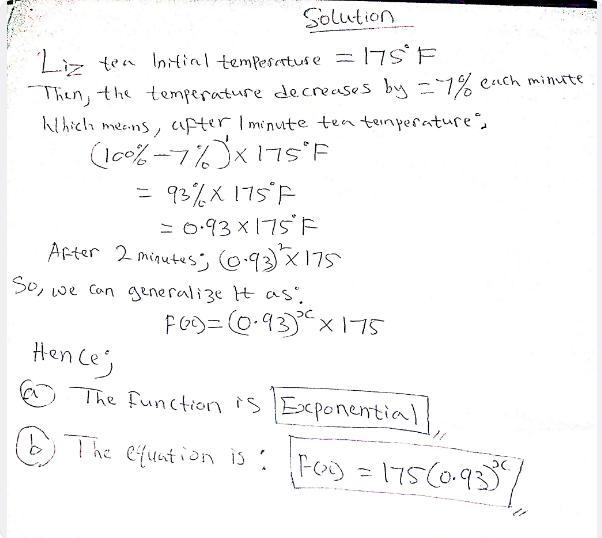 Solution
Liz tea Initial temperature = 175°F
Then, the temperature decreases by = 7% each minute
Which means, after 1 minute tea temperature:
(100% - 7%) × 175°F
= 93% × 175°F
= 0.93 × 175°F
After 2 minutes; (0.93)² × 175
So, we can generalize it as:
F(x) = (0.93)ˣ × 175
Hence;
(a) The function is Exponential //
(b) The equation is : F(x) = 175(0.93)ˣ //